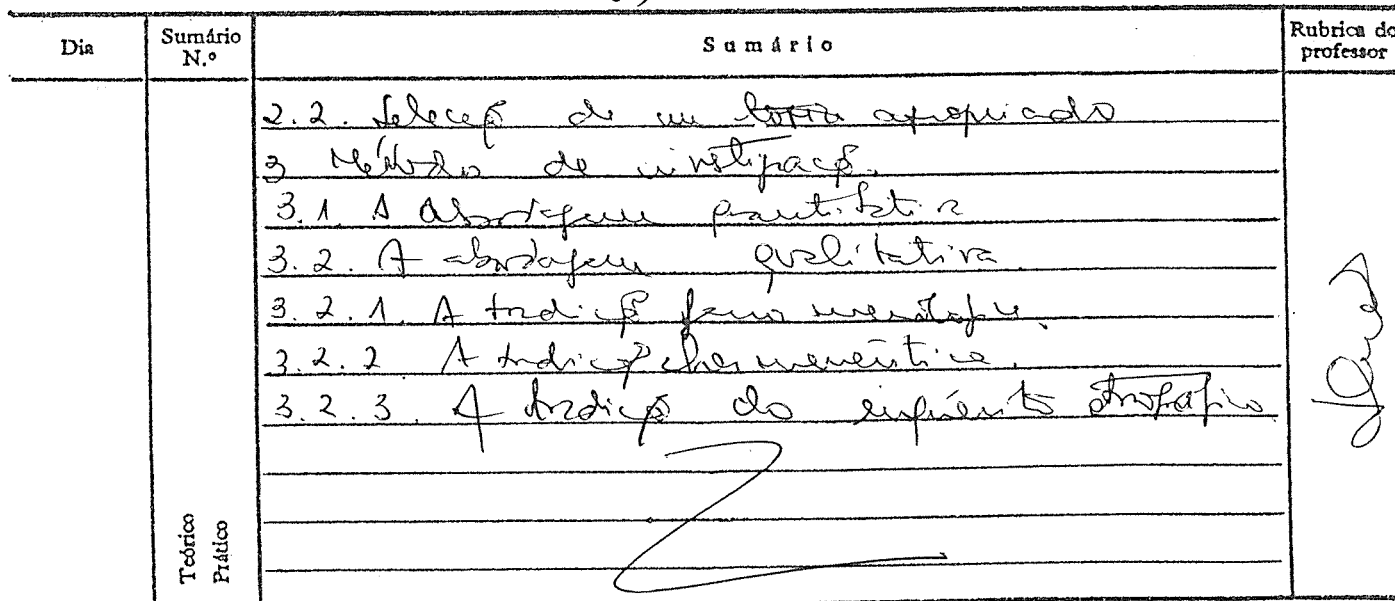 Dia
Sumário N.º
Sumário
Rubrica do professor
2.2. Selecção de um apropriado
3 Métodos de investigação.
3.1. A abordagem quantitativa
3.2. A abordagem qualitativa
3.2.1. A tradição fenomenológica.
3.2.2 A tradição hermenêutica.
3.2.3. A tradição do inquérito etnográfico
Teórico
Prático